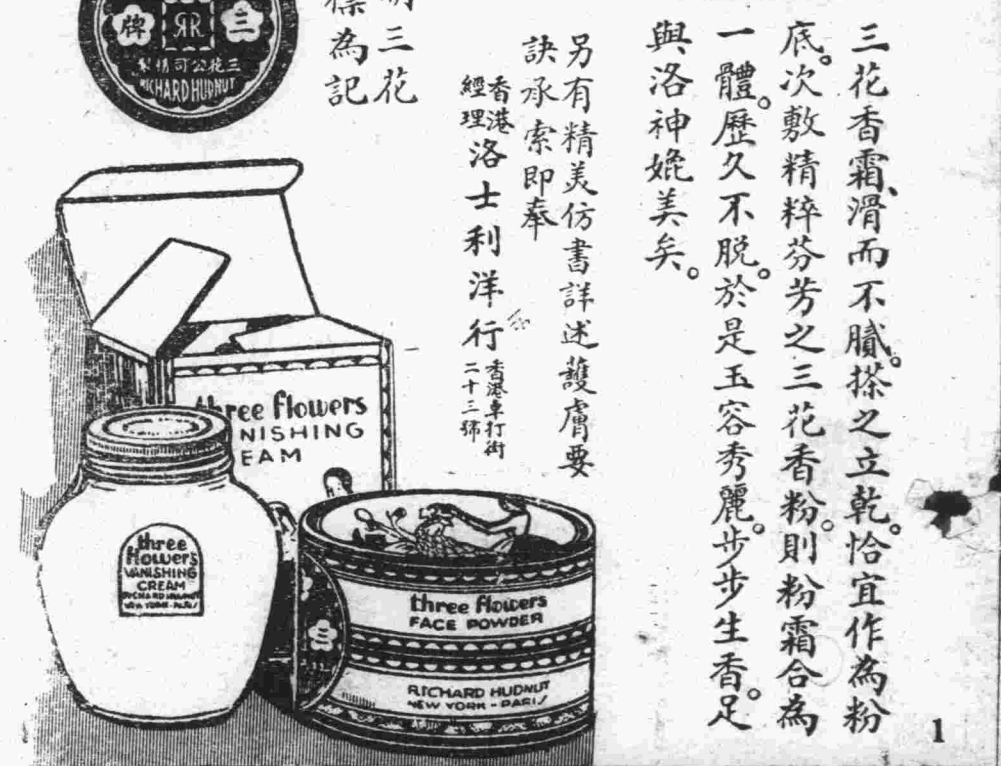 三花香霜、滑而不膩。搽之立乾。恰宜作為粉
底。次敷精粹芬芳之三花香粉。則粉霜合為
一體。歷久不脱。於是玉容秀麗。步步生香。足
與洛神媲美矣。
另有精美仿書詳述護膚要
訣承索即奉
香港
經理
洛士利洋行
香港車打街
二十三號
三花
為記
三
牌
RR
三花公司精製
RICHARD HUDNUT
three flowers
NISHING
EAM
three
flowers
VANISHING
CREAM
RICHARD HUDNUT
NEW YORK - PARIS
三
three flowers
FACE POWDER
RICHARD HUDNUT
NEW YORK - PARIS
1